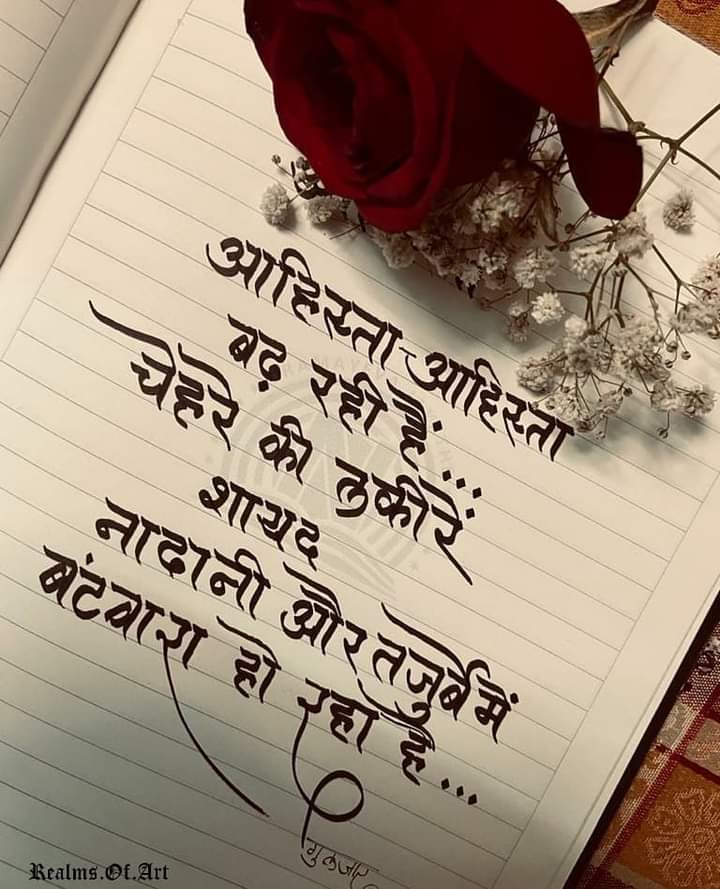 आहिस्ता-आहिस्ता
बढ़ रही हैं...
चेहरे की लकीरें
शायद
नादानी और तजुर्बे में
बंटवारा हो रहा है...
गुलज़ार
Realms.Of.Art